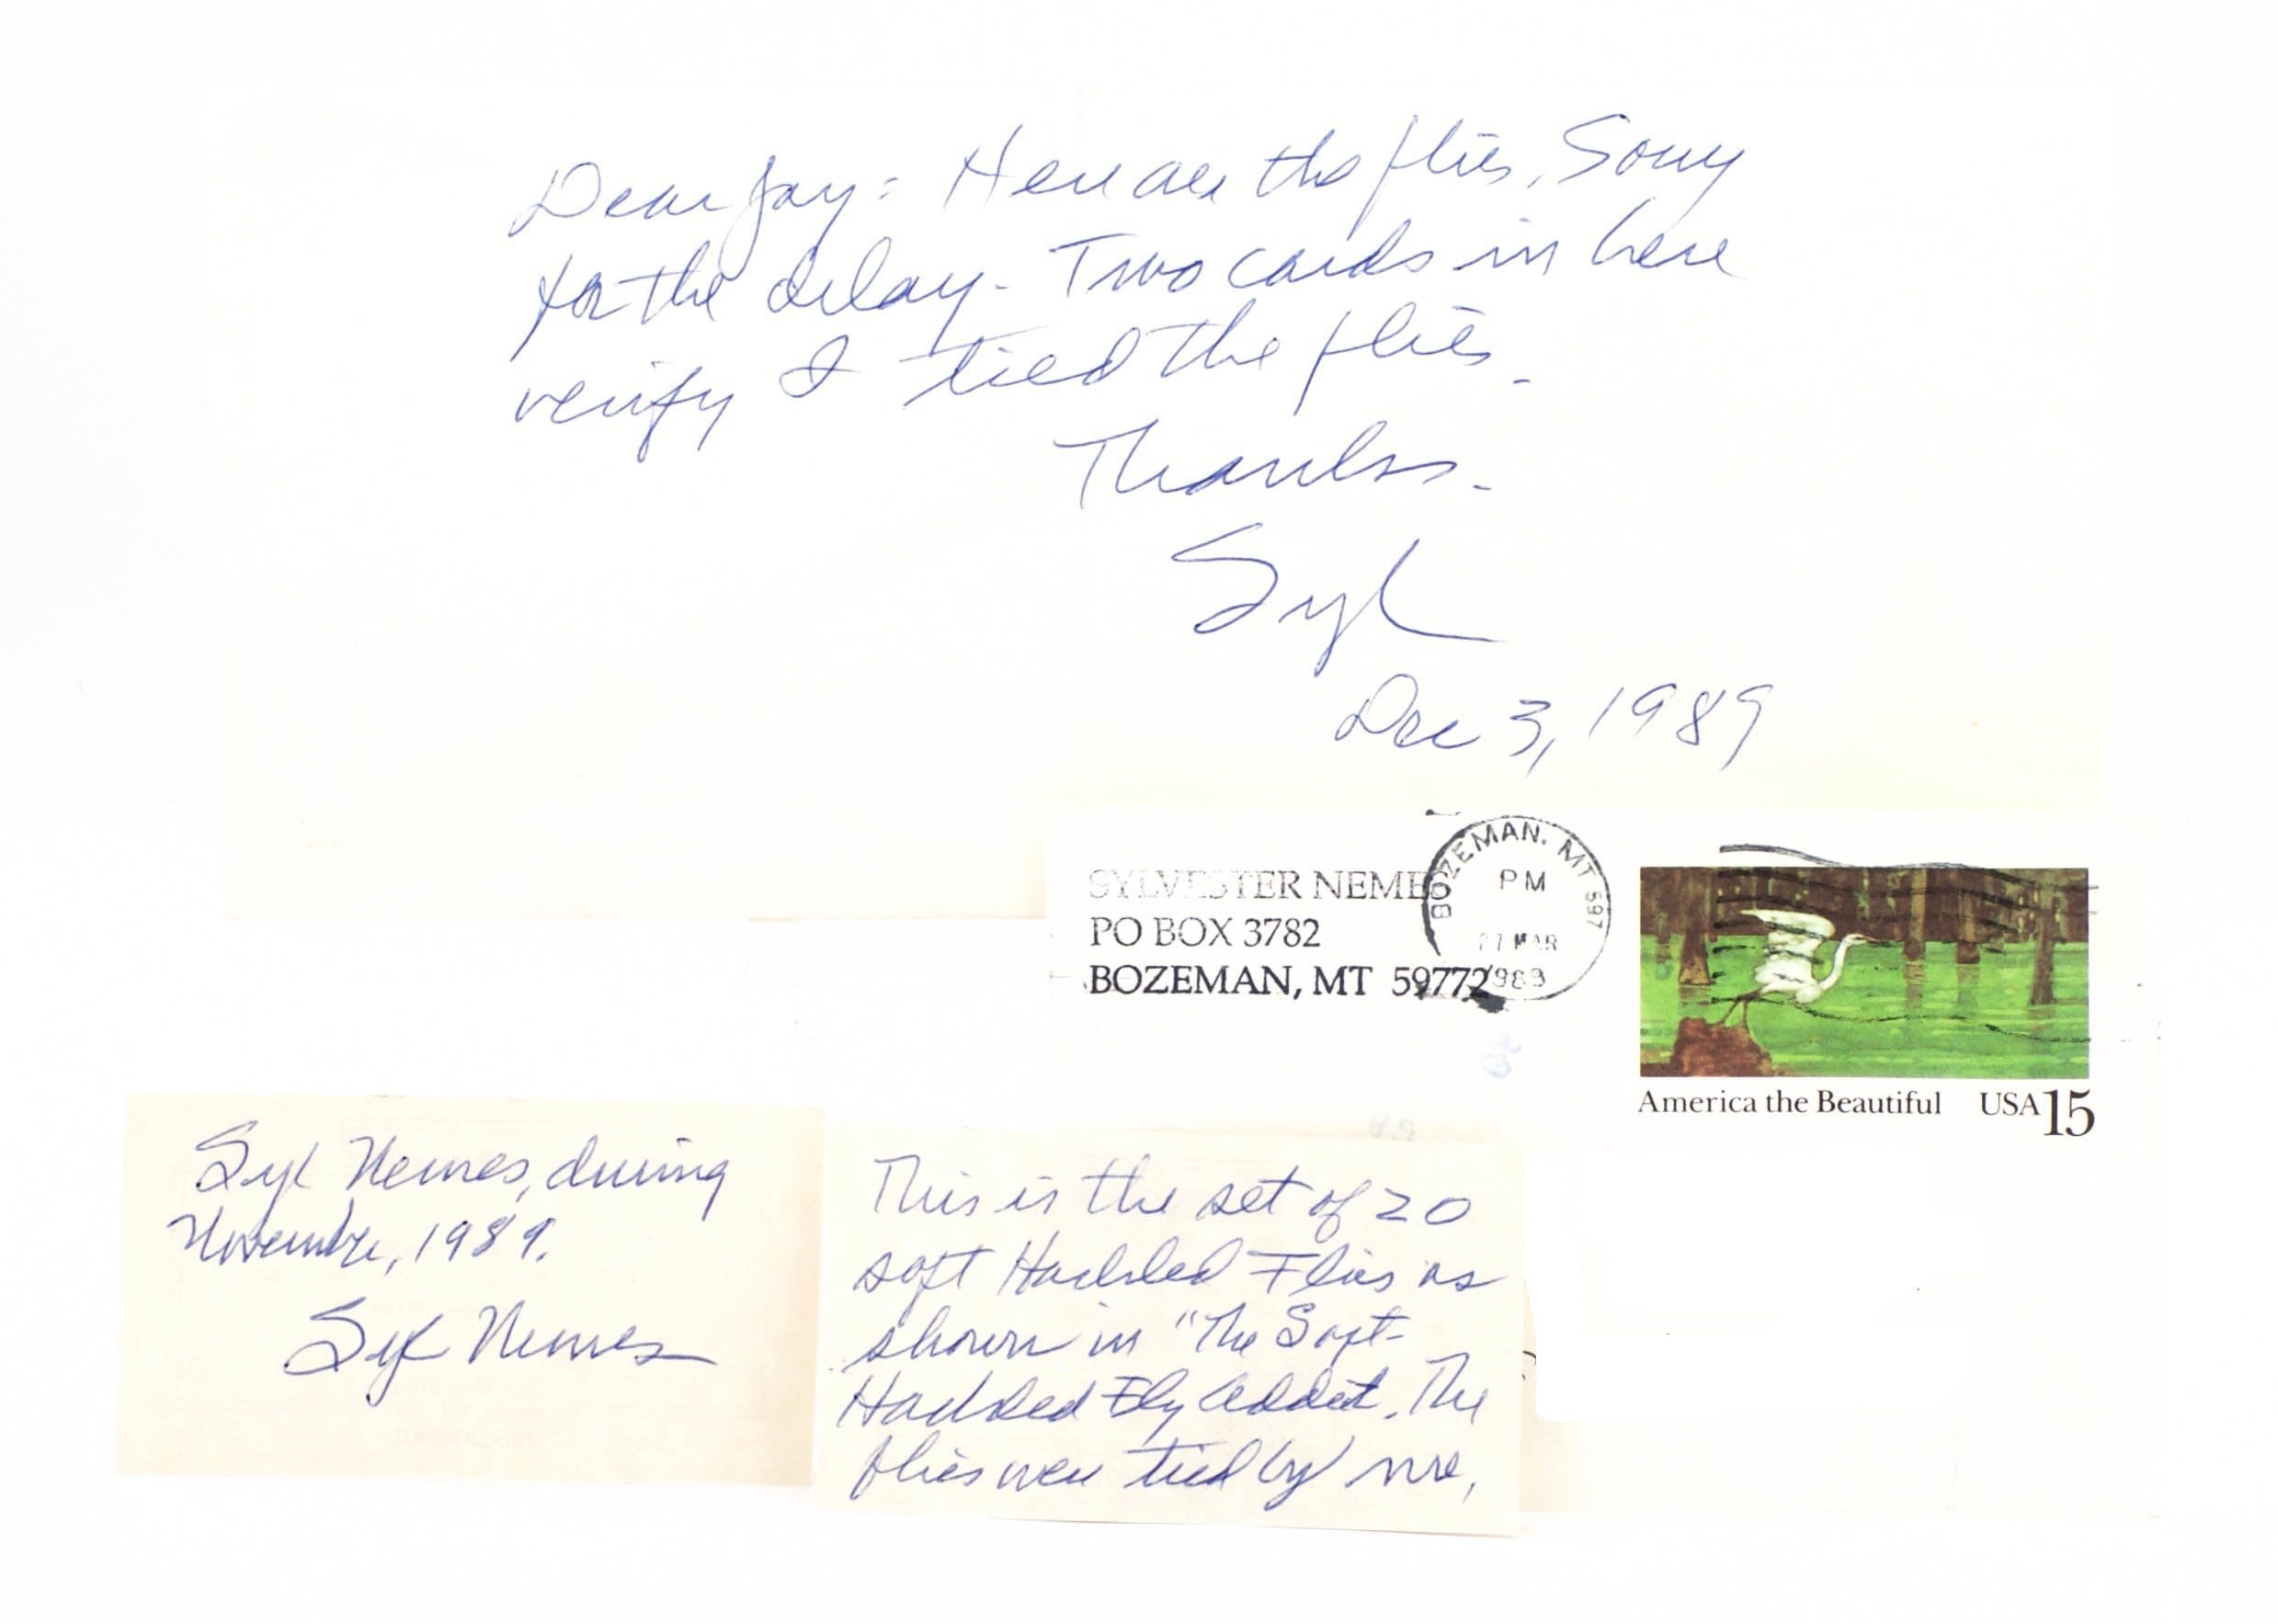 Dear Jay: Here are the flies. Sorry
for the delay - Two cards in here
verify I tied the flies.
Thanks -
Syl
Dec 3, 1989
SYLVESTER NEMES
PO BOX 3782
BOZEMAN, MT 59772
BOZEMAN, MT 597
PM
MAR
America the Beautiful USA 15
Syl Nemes, during
November, 1989.
Syl Nemes
This is the set of 20
soft Hackled Flies as
shown in "The Soft-
Hackled Fly Addict. The
flies were tied by me,